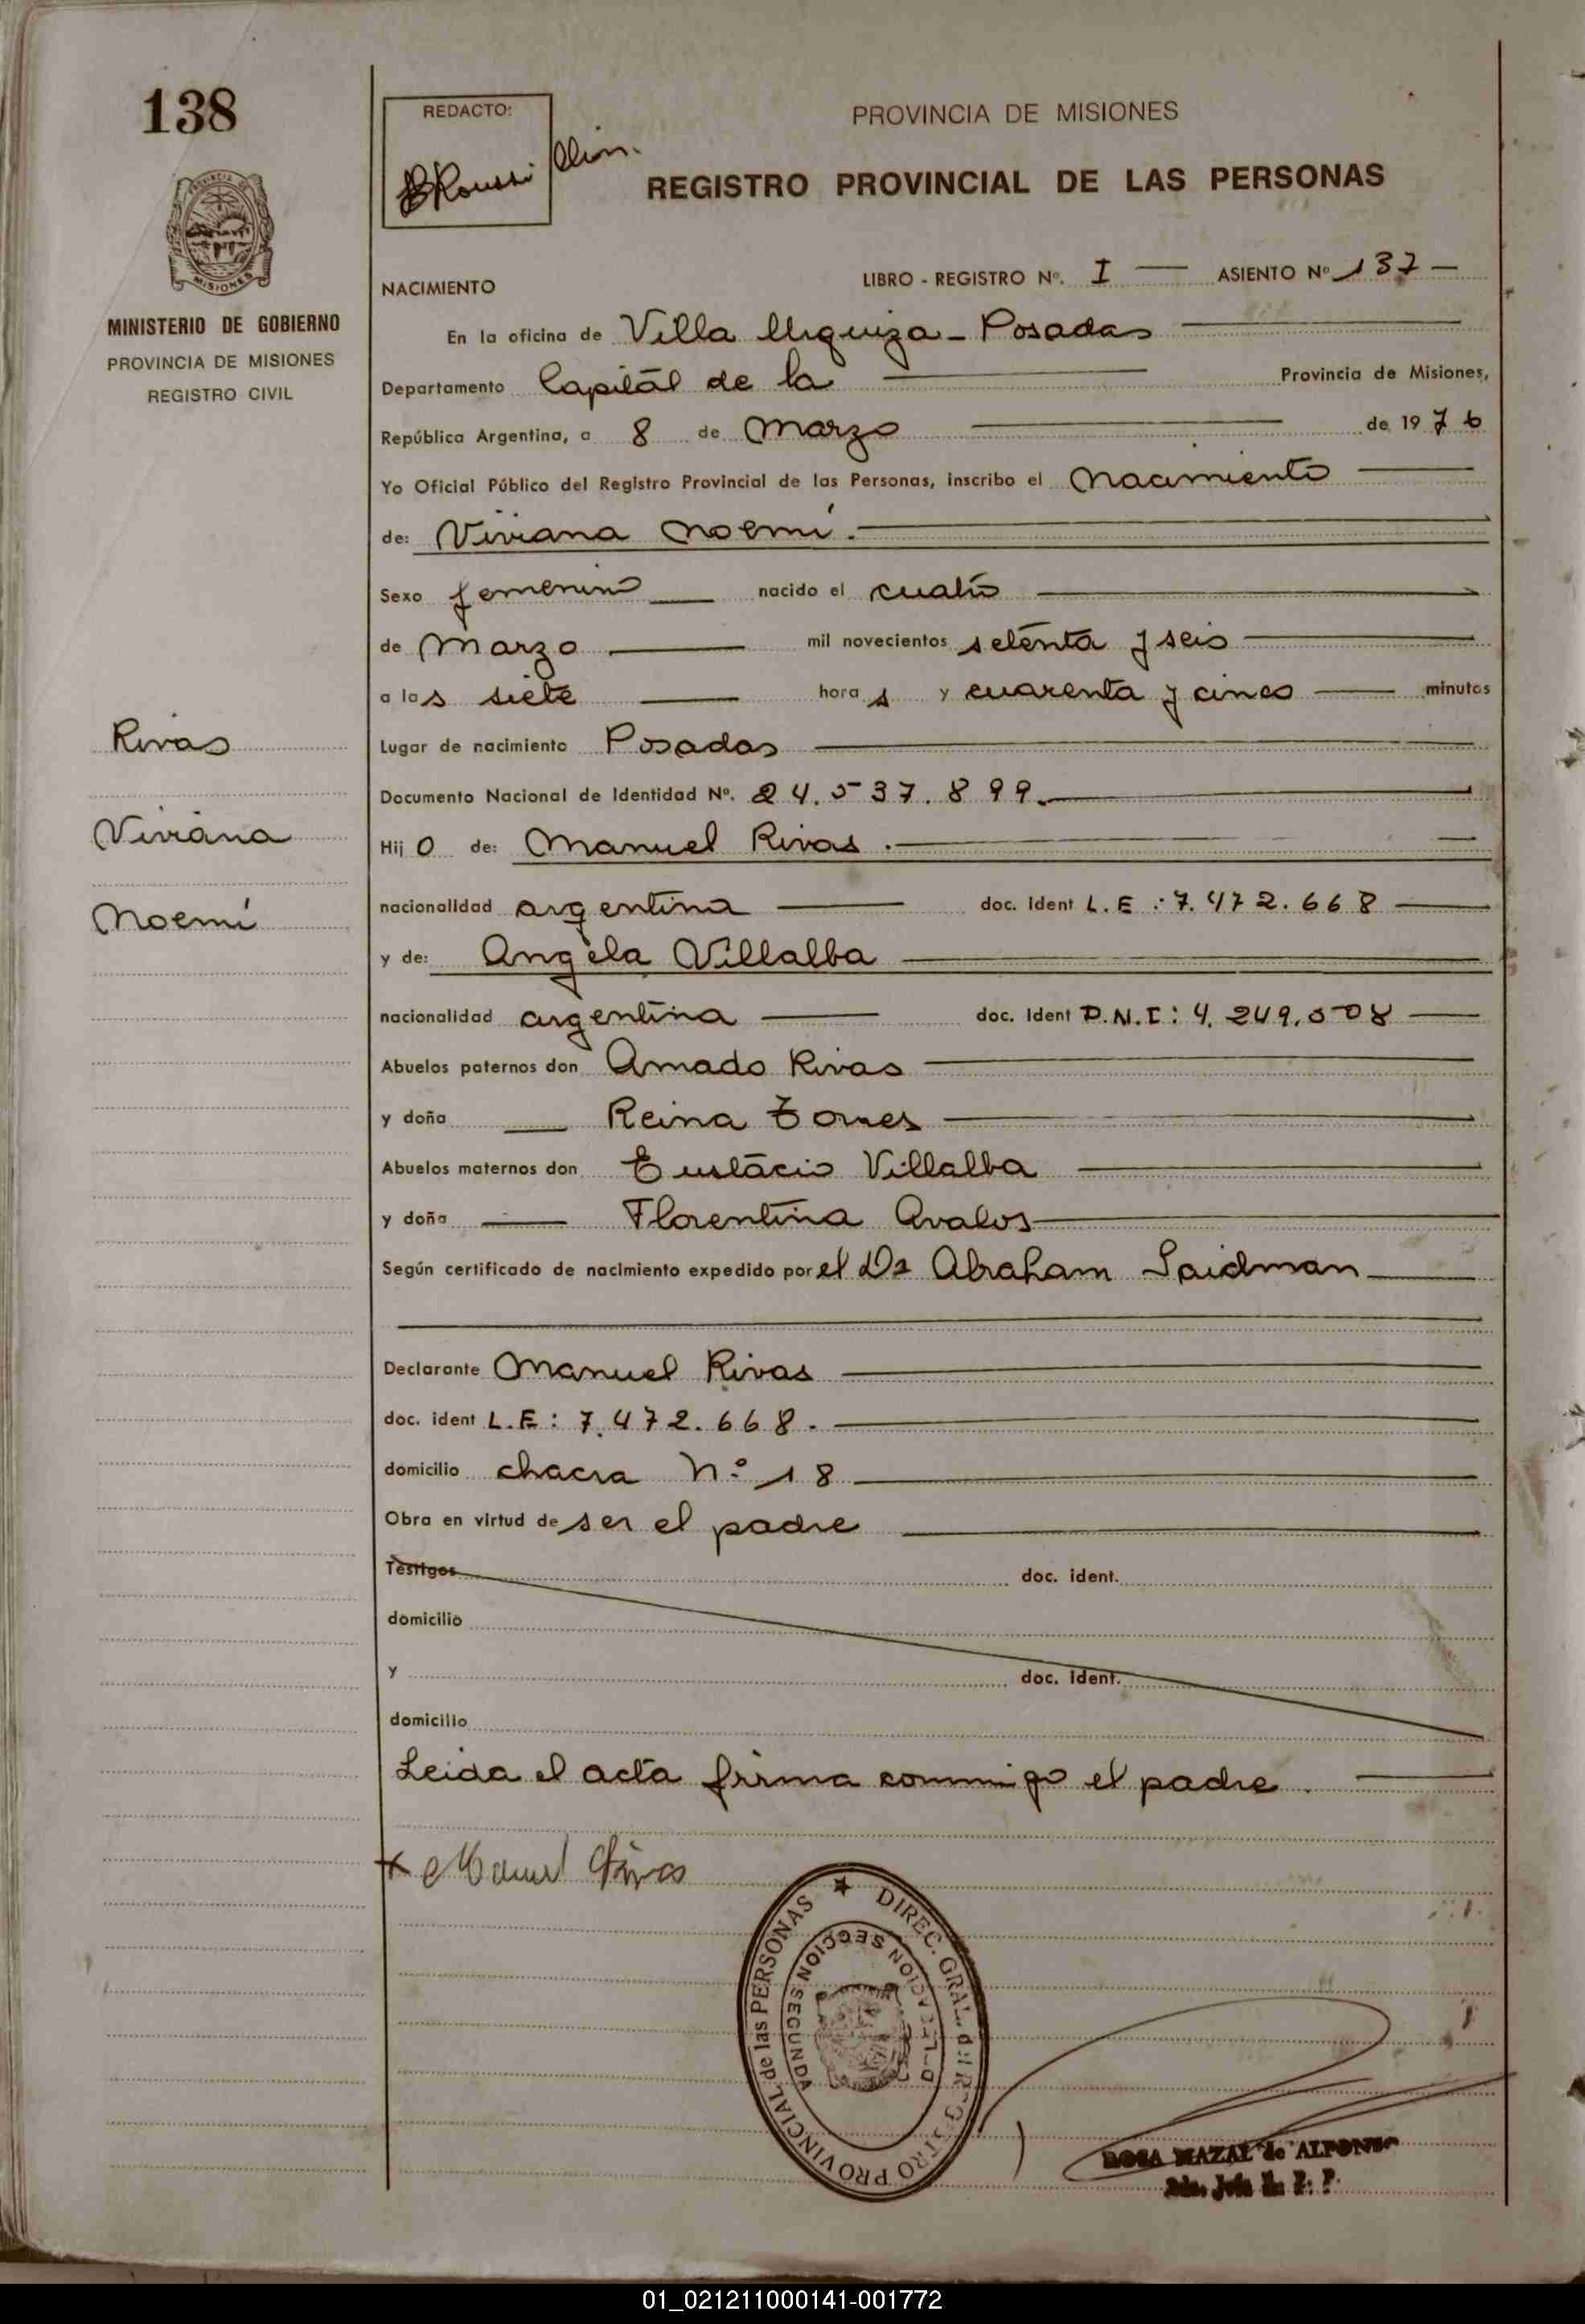 138
REDACTO:
BRoussillon.
PROVINCIA DE MISIONES
REGISTRO PROVINCIAL DE LAS PERSONAS
PROVINCIA DE
MISIONES
MINISTERIO DE GOBIERNO
PROVINCIA DE MISIONES
REGISTRO CIVIL
Rivas
Viviana
Noemí
NACIMIENTO LIBRO - REGISTRO Nº. I — ASIENTO Nº 137 —
En la oficina de Villa Urquiza - Posadas
Departamento Capital de la Provincia de Misiones,
República Argentina, a 8 de Marzo de 1976
Yo Oficial Público del Registro Provincial de las Personas, inscribo el Nacimiento
de: Viviana Noemí.
Sexo femenino nacido el cuatro
de Marzo mil novecientos setenta y seis
a las siete horas y cuarenta y cinco minutos
Lugar de nacimiento Posadas
Documento Nacional de Identidad Nº. 24.537.899.
Hijo de: Manuel Rivas.
nacionalidad argentina doc. ident L.E.: 7.472.668
y de: Angela Villalba
nacionalidad argentina doc. ident D.N.I: 4.249.508
Abuelos paternos don Amado Rivas
y doña Reina
Abuelos maternos don Eustacio Villalba
y doña Florentina Avalos
Según certificado de nacimiento expedido por el Dr Abraham Saidman
Declarante Manuel Rivas
doc. ident L.E: 7.472.668.
domicilio chacra Nº 18
Obra en virtud de ser el padre
Testigos doc. ident.
domicilio
y doc. ident.
domicilio
Leida el acta firma conmigo el padre.
x Manuel Rivas
DIREC. GRAL. del REGISTRO PROVINCIAL de las PERSONAS
DELEGACION SECCION SEGUNDA
ROSA MAZAL de ALFONSO
01_021211000141-001772